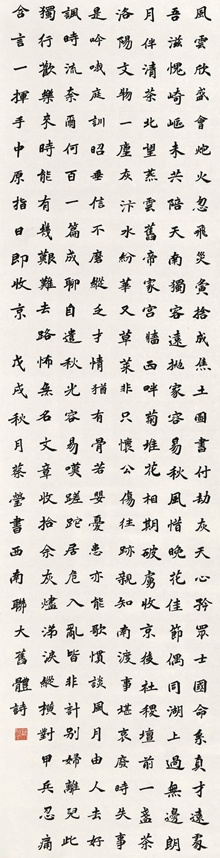 風雲欣盛會炮火忽飛災黌捨成焦土圖書付劫灰天心矜眾士國命系真才遠處
吾滋愧崎嶇未共陪天南獨客遠拋家容易秋風惜晚花佳節偶同湖上過無邊朗
月伴清茶北望燕雲舊帝家宮牆西畔菊堆花相期破虜收京後社稷壇前一盞茶
洛陽文物一塵灰汴水紛華又草萊非只懷公傷往跡親知南渡事堪哀廢時失事
是吟哦庭訓昭垂信不磨縱乏才情猶有骨若嬰憂患亦能歌慣談風月由人去好
諷時流奈爾何百一篇成聊自遣秋光容易嘆蹉跎居危入亂皆非計別婦離兒此
獨行歡樂來時能有幾艱難去路怖無名文章收拾余灰燼涕淚縱橫對甲兵忍痛
含言一揮手中原指日即收京 戊戌秋月蔡瑩書西南聯大舊體詩